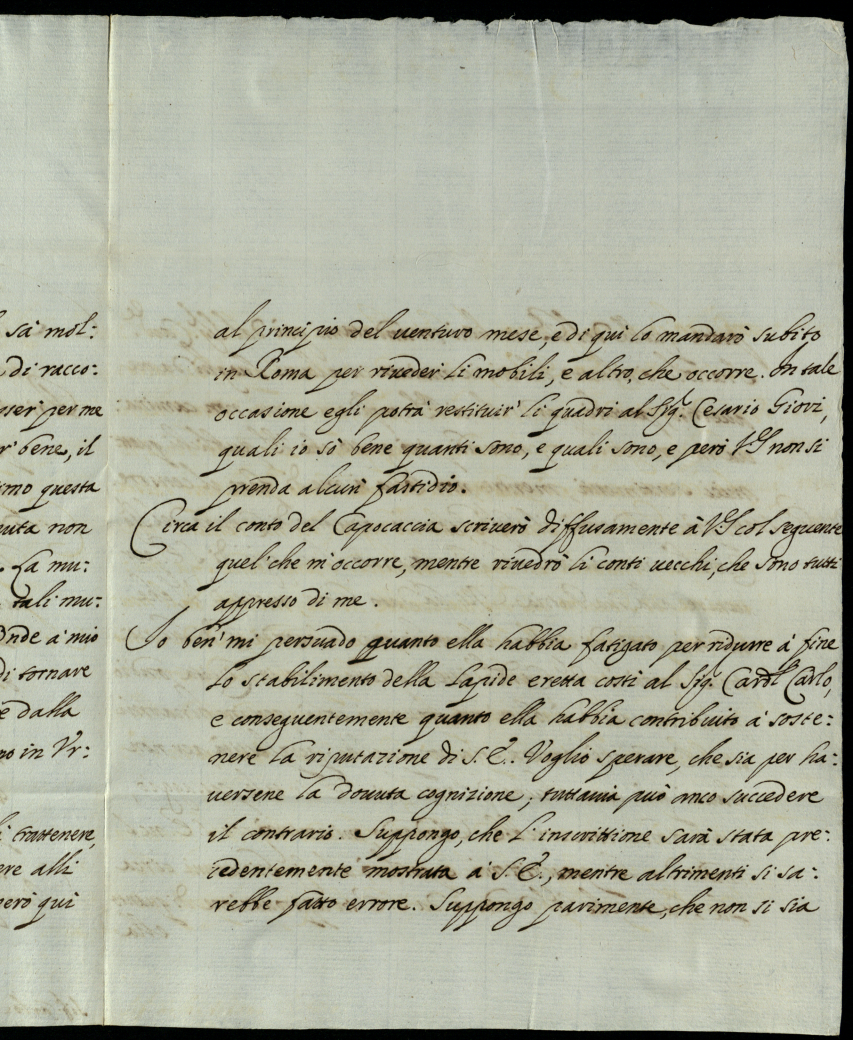 sà mol:
di racco:
oser per me
r' bene, il
smo questa
uuta non
. La mu:
tali mu:
Onde à mio
di tornare
è dalla
no in Vr:
li trattenere,
ere alli
però qui
al principio del uenturo mese, e di qui lo mandarò subito
in Roma per riueder' li mobili, e altro, che occorre. In tale
occasione egli potrà restituir' li quadri al Sig.r Cesario Giovi,
quali io sò bene quanti sono, e quali sono, e però VS non si
prenda alcun' fastidio.
Circa il conto del Capocaccia scriuerò diffusamente à VS col seguente
quel' che m'occorre, mentre riuedrò li conti uecchi, che sono tutti
appresso di me.
Io ben' mi persuado quanto ella habbia fatigato per ridurre à fine
lo stabilimento della lapide eretta costì al Sig. Cardl Carlo,
e conseguentemente quanto ella habbia contribuito à soste:
nere la riputazione di S. E. Voglio sperare, che sia per ha:
uersene la douuta cognizione; tuttauia può anco succedere
il contrario. Suppongo, che l'inscrittione sarà stata pre:
cedentemente mostrata à S. E., mentre altrimenti si sa:
rebbe fatto errore. Suppongo parimente, che non si sia